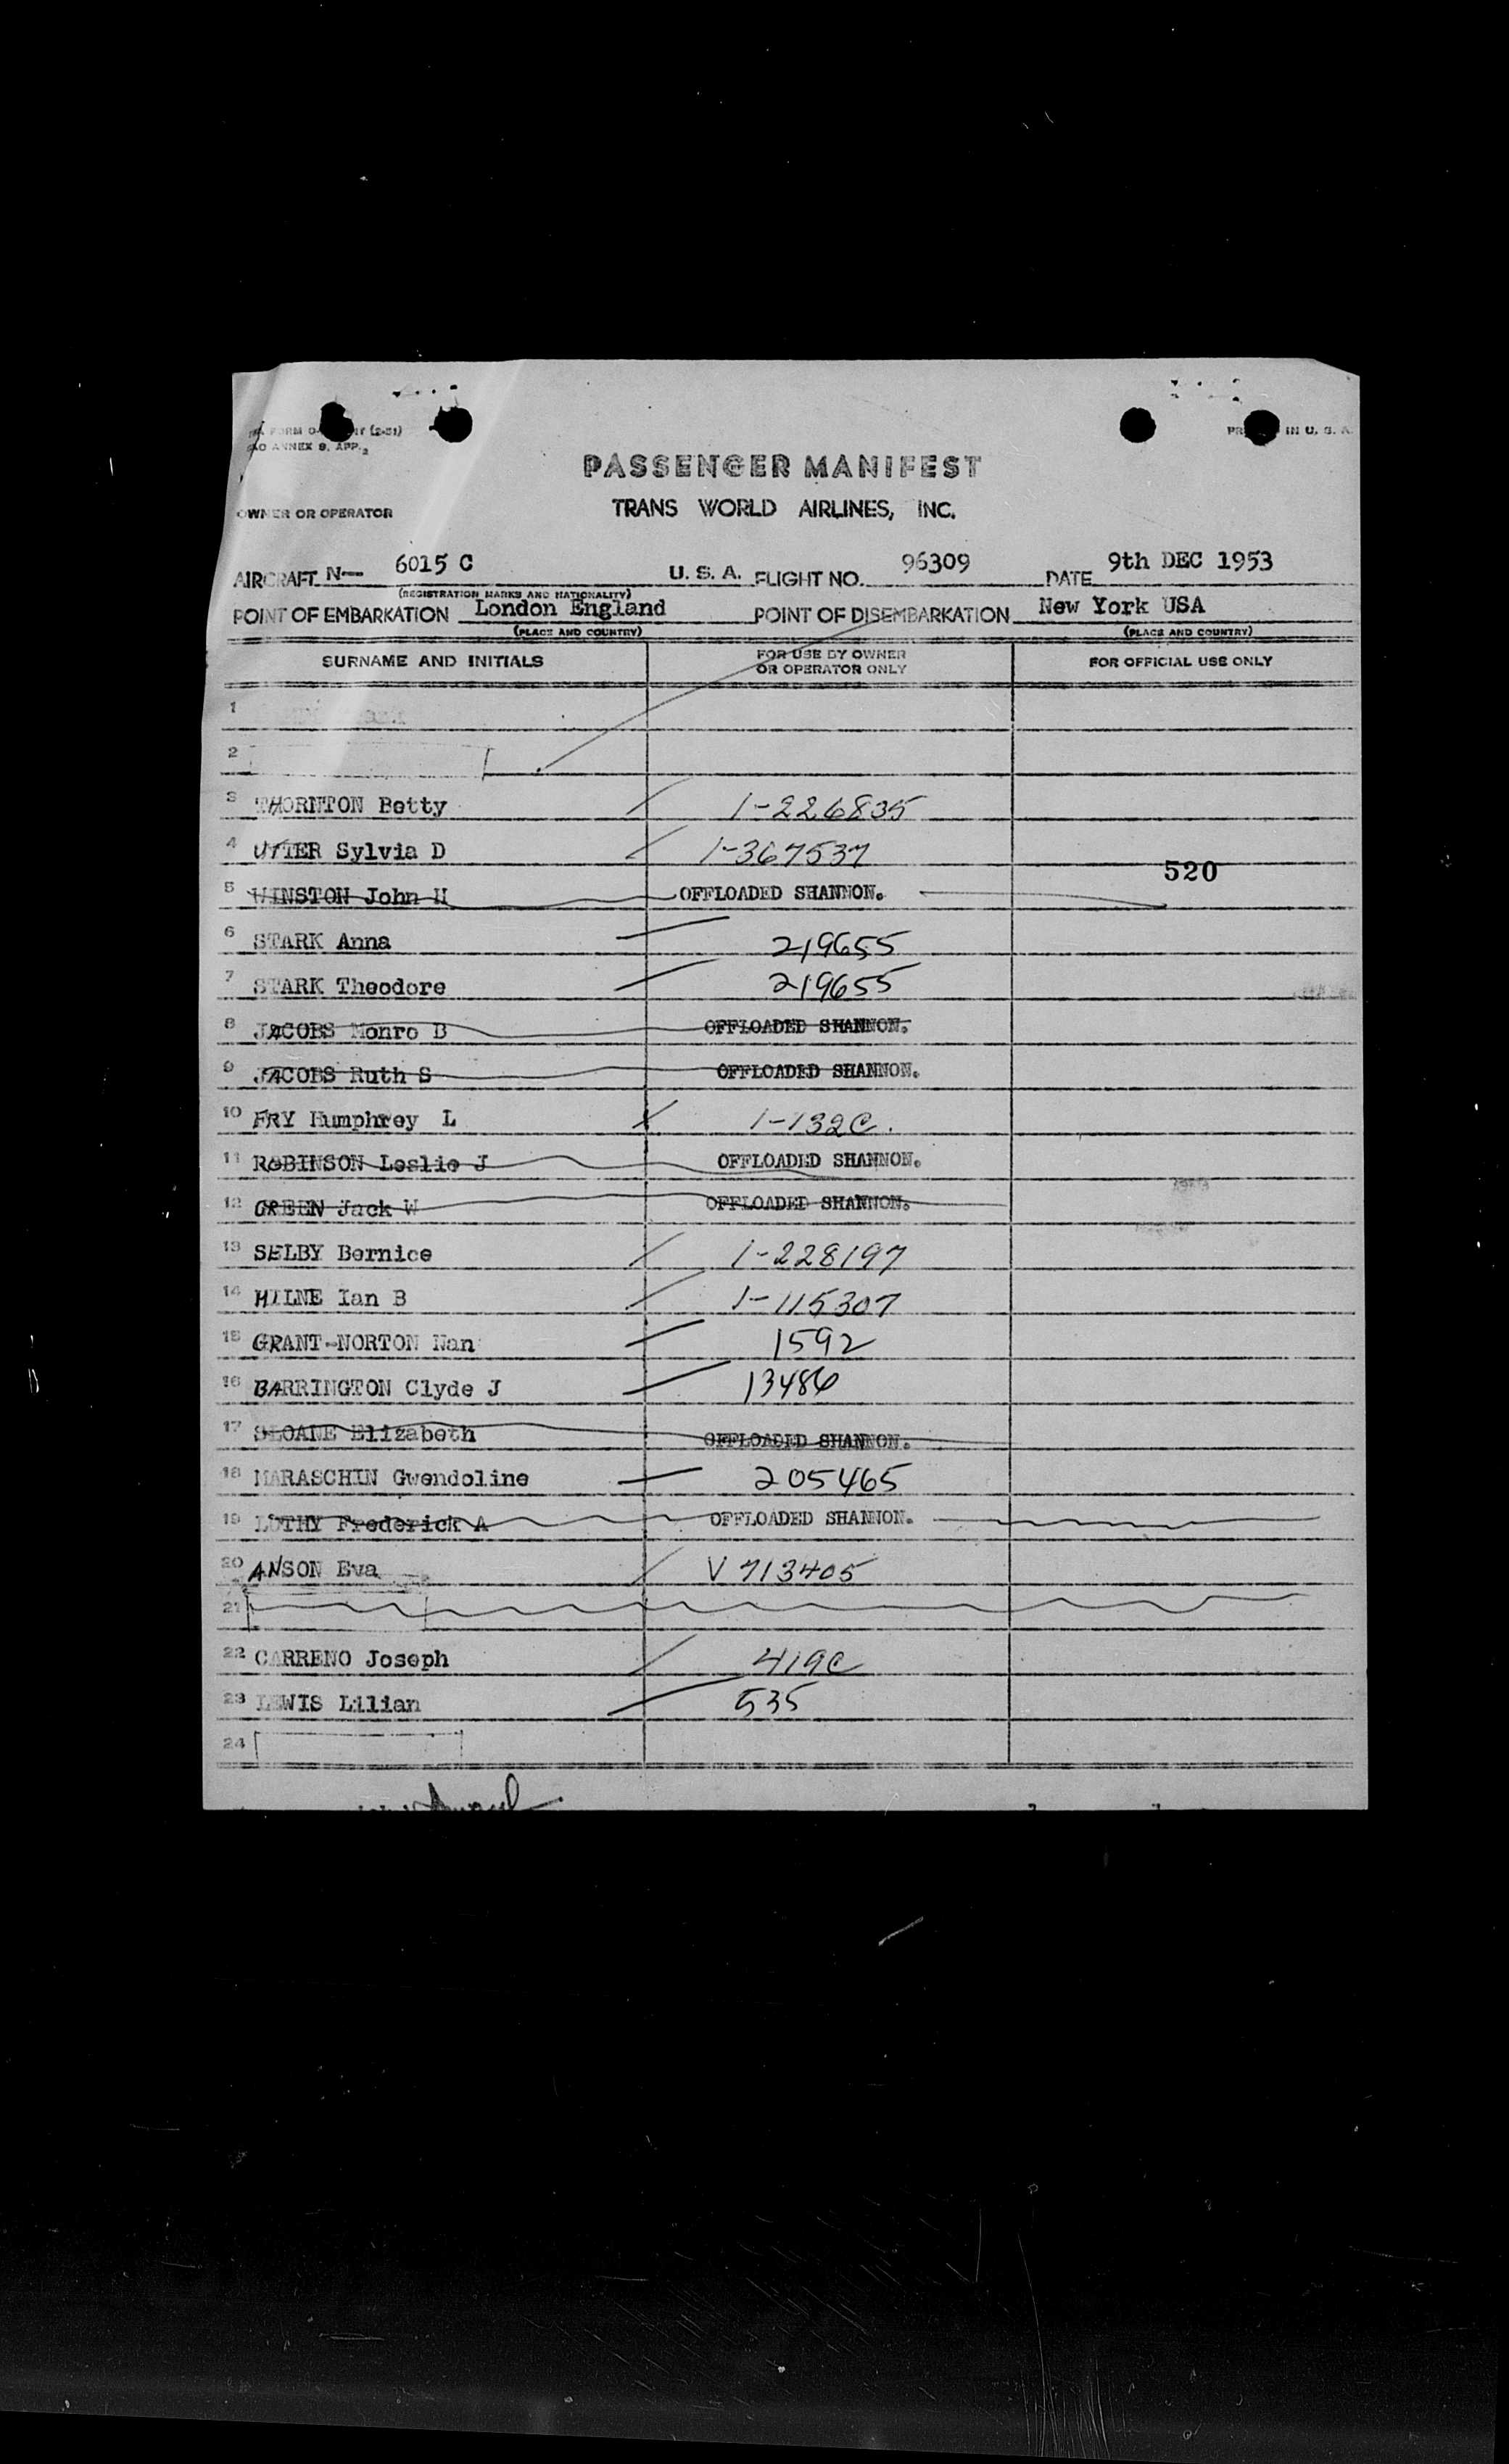 FORM
ANNEX 9. APP. 2
IN U. S. A.
PASSENGER MANIFEST
OWNER OR OPERATOR
TRANS WORLD AIRLINES, INC.
AIRCRAFT N— 6015 C U. S. A. FLIGHT NO. 96309 DATE 9th DEC 1953
(REGISTRATION MARKS AND NATIONALITY)
POINT OF EMBARKATION London England POINT OF DISEMBARKATION New York USA
(PLACE AND COUNTRY) (PLACE AND COUNTRY)
SURNAME AND INITIALS FOR USE BY OWNER OR OPERATOR ONLY FOR OFFICIAL USE ONLY
1
2
3 THORNTON Betty 1-226835
4 UTTER Sylvia D 1-367537
520
5 WINSTON John H OFFLOADED SHANNON.
6 STARK Anna 219655
7 STARK Theodore 219655
8 JACOBS Monro B OFFLOADED SHANNON.
9 JACOBS Ruth S OFFLOADED SHANNON.
10 FRY Humphrey L 1-132C.
11 ROBINSON Leslie J OFFLOADED SHANNON.
12 GREEN Jack W OFFLOADED SHANNON.
13 SELBY Bernice 1-228197
14 MILNE Ian B 1-115307
15 GRANT-NORTON Nan 1592
16 BARRINGTON Clyde J 13486
17 SLOANE Elizabeth OFFLOADED SHANNON.
18 MARASCHIN Gwendoline 205465
19 LOTHY Frederick A OFFLOADED SHANNON.
20 ANSON Eva V 713405
21
22 CARRENO Joseph 419C
23 LEWIS Lilian 535
24